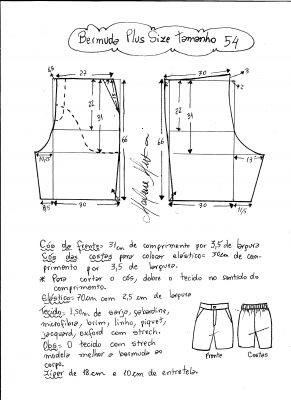 Bermuda Plus Size tamanho 54
65
27
30
3
2
22
31
22
31
66
66
66
10,5
13
4,5
30
30
4,5
Cós da frente: 31cm de comprimento por 3,5 de largura
Cós das costas para colocar elástico: 50cm de com-
primento por 3,5 de largura.
* Para cortar o cós, dobre o tecido no sentido do
comprimento.
Elástico: 70cm com 2,5 cm de largura
Tecido: 1,50m de sarja, gabardine,
microfibra, brim, linho, piquet,
jacquard, oxford com strech.
Obs: O tecido com strech
modela melhor a bermuda ao
corpo.
Zíper de 18cm e 10cm de entretela.
Frente
Costas